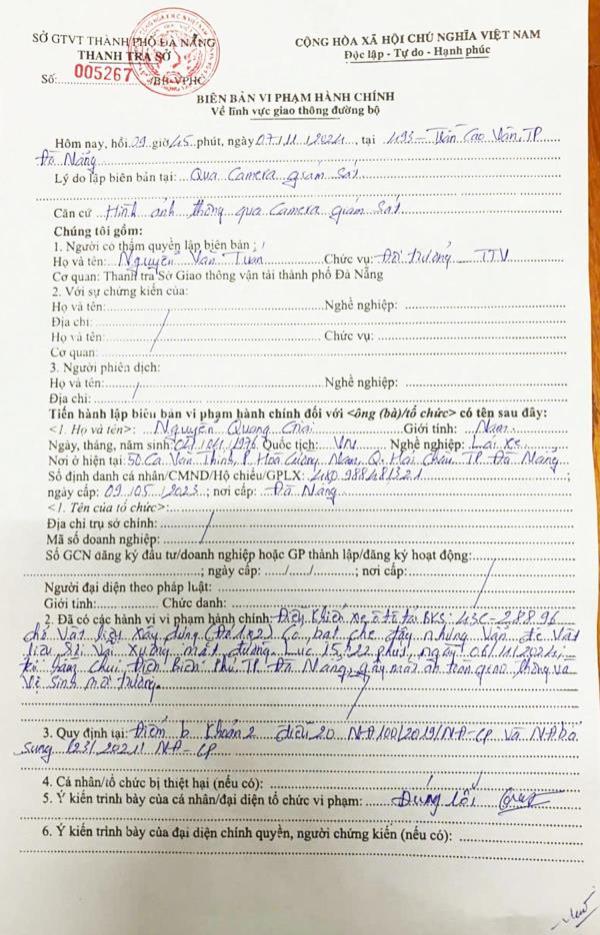 SỞ GTVT THÀNH PHỐ ĐÀ NẴNG
THANH TRA SỞ
Số: 005267 /BB-VPHC
CỘNG HÒA XÃ HỘI CHỦ NGHĨA VIỆT NAM
Độc lập - Tự do - Hạnh phúc
BIÊN BẢN VI PHẠM HÀNH CHÍNH
Về lĩnh vực giao thông đường bộ
Hôm nay, hồi 09 giờ 45 phút, ngày 07/11/2024, tại 493 - Trần Cao Vân, TP
Đà Nẵng
Lý do lập biên bản tại: Qua Camera giám sát
Căn cứ Hình ảnh thông qua Camera giám sát
Chúng tôi gồm:
1. Người có thẩm quyền lập biên bản:
Họ và tên: Nguyễn Văn Tuấn Chức vụ: Đội trưởng TTV
Cơ quan: Thanh tra Sở Giao thông vận tải thành phố Đà Nẵng
2. Với sự chứng kiến của:
Họ và tên: Nghề nghiệp:
Địa chỉ:
Họ và tên: Chức vụ:
Cơ quan:
3. Người phiên dịch:
Họ và tên: Nghề nghiệp:
Địa chỉ:
Tiến hành lập biên bản vi phạm hành chính đối với <ông (bà)/tổ chức> có tên sau đây:
<1. Họ và tên>: Nguyễn Quang Giới tính: Nam
Ngày, tháng, năm sinh: 1976 Quốc tịch: VN Nghề nghiệp: Lái xe
Nơi ở hiện tại: 50 Ca Văn Thỉnh, P. Hoà Cường Nam, Q. Hải Châu, TP Đà Nẵng
Số định danh cá nhân/CMND/Hộ chiếu/GPLX:
ngày cấp: 09.05.2023; nơi cấp: Đà Nẵng
<1. Tên của tổ chức>:
Địa chỉ trụ sở chính:
Mã số doanh nghiệp:
Số GCN đăng ký đầu tư/doanh nghiệp hoặc GP thành lập/đăng ký hoạt động:
; ngày cấp: ..../..../....; nơi cấp:
Người đại diện theo pháp luật:
Giới tính: Chức danh:
2. Đã có các hành vi vi phạm hành chính: Điều khiển xe ô tô tải BKS: 43C-28896
chở vật liệu xây dựng (Đá 1x2) có bạt che đậy nhưng vẫn để vật
liệu rơi vãi xuống mặt đường. Lúc 15h22 phút, ngày 06/11/2024,
hầm chui Điện Biên Phủ, TP. Đà Nẵng, gây mất an toàn giao thông và
vệ sinh môi trường.
3. Quy định tại: Điểm b Khoản 2 điều 20 NĐ 100/2019/NĐ-CP và NĐ bổ
sung 123/2021/NĐ-CP
4. Cá nhân/tổ chức bị thiệt hại (nếu có):
5. Ý kiến trình bày của cá nhân/đại diện tổ chức vi phạm: Đúng lỗi
6. Ý kiến trình bày của đại diện chính quyền, người chứng kiến (nếu có):